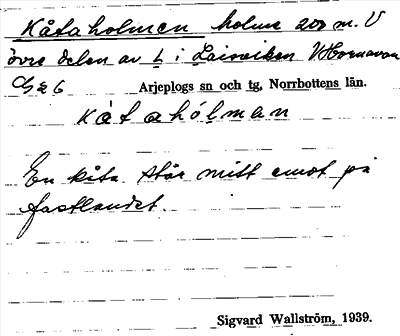 Kåtaholmen holme 200 m. V
övre delen av L i Laisviken V Hornavan
G 2 6 Arjeplogs sn och tg, Norrbottens län.
kåtahólman
En kåta står mitt emot på
fastlandet.
Sigvard Wallström, 1939.